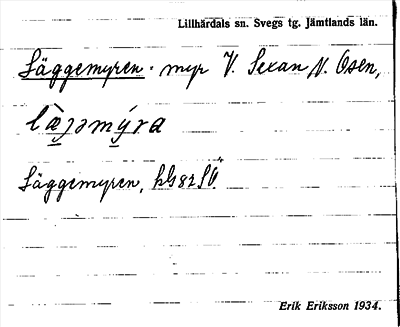 Lillhärdals sn. Svegs tg. Jämtlands län.
Läggemyren. myr V. Sexan N. Osen,
læ̀jəmýra
Läggemyren, hbl 82 SV.
Erik Eriksson 1934.